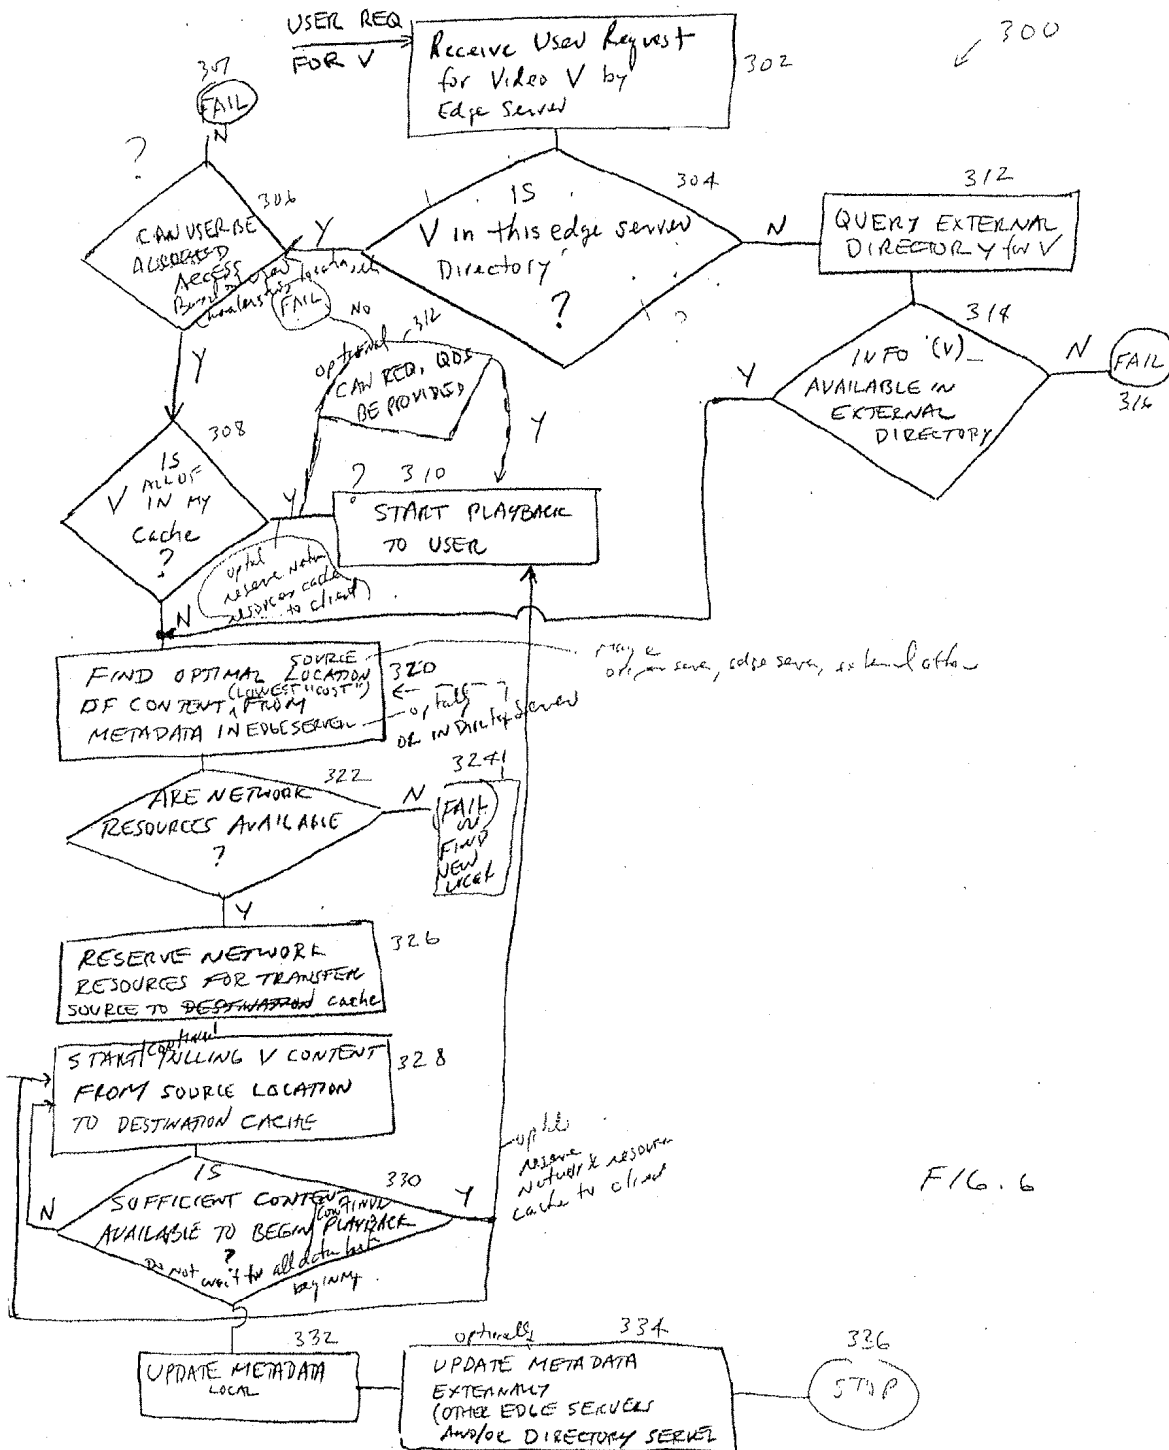 USER REQ
FOR V
Receive User Request
for Video V by
Edge Server
302
300
307
FAIL
N
?
306
CAN USER BE
ACCESS
Y
304
IS
V in this edge server
Directory
?
N
312
QUERY EXTERNAL
DIRECTORY for V
314
INFO (V)
AVAILABLE IN
EXTERNAL
DIRECTORY
Y
N
FAIL
316
FAIL
NO
optional
312
CAN REQ. QOS
BE PROVIDED
Y
Y
308
IS
ALL OF
V IN MY
Cache
?
Y
?
310
START PLAYBACK
TO USER
reserve
resources cache
to client
N
FIND OPTIMAL SOURCE
LOCATION
OF CONTENT, (LOWEST "COST") FROM
METADATA IN EDGE SERVER
320
origin server, edge server, external
OR IN Directory Server
322
ARE NETWORK
RESOURCES AVAILABLE
?
N
324
FAIL
OR
FIND
NEW
Y
RESERVE NETWORK
RESOURCES FOR TRANSFER
SOURCE TO DESTINATION cache
326
START/continue PULLING V CONTENT
FROM SOURCE LOCATION
TO DESTINATION CACHE
328
IS
SUFFICIENT CONTENT
AVAILABLE TO BEGIN/CONTINUE PLAYBACK
?
Do not wait for all data but
330
N
Y
reserve
Network resource
cache to client
FIG. 6
332
UPDATE METADATA
LOCAL
optionally
334
UPDATE METADATA
EXTERNALLY
(OTHER EDGE SERVERS
AND/OR DIRECTORY SERVER
336
STOP